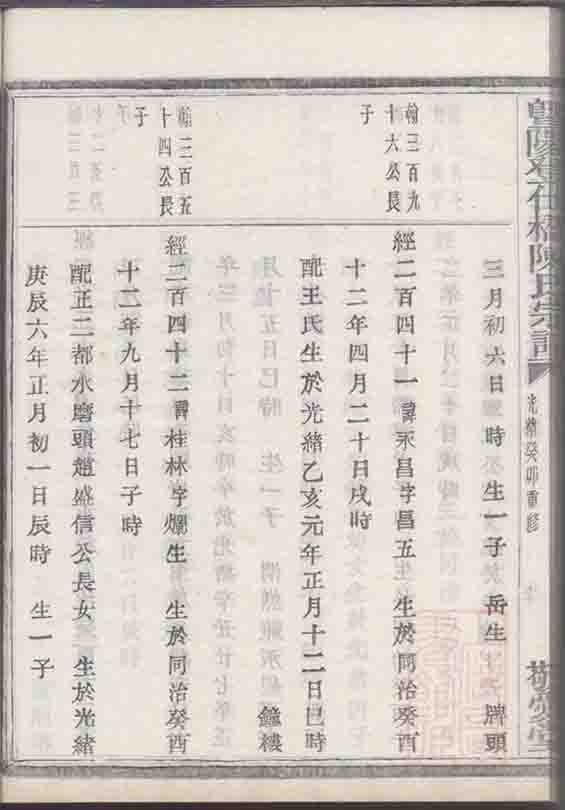 暨陽
橋陳氏宗譜
光緒癸卯重修
三月初六日 時 生一子 岳生 牌頭
翰三百九
十六公長
子
經二百四十一諱永昌字昌五 生於同治癸酉
十二年四月二十日戌時
配王氏生於光緒乙亥元年正月十二日巳時
鐘樓
翰三百五
十四公長
子
經二百四十二諱桂林字爛生 生於同治癸酉
十二年九月十七日子時
配正二都水磨頭趙盛信公長女 生於光緒
庚辰六年正月初一日辰時 生一子